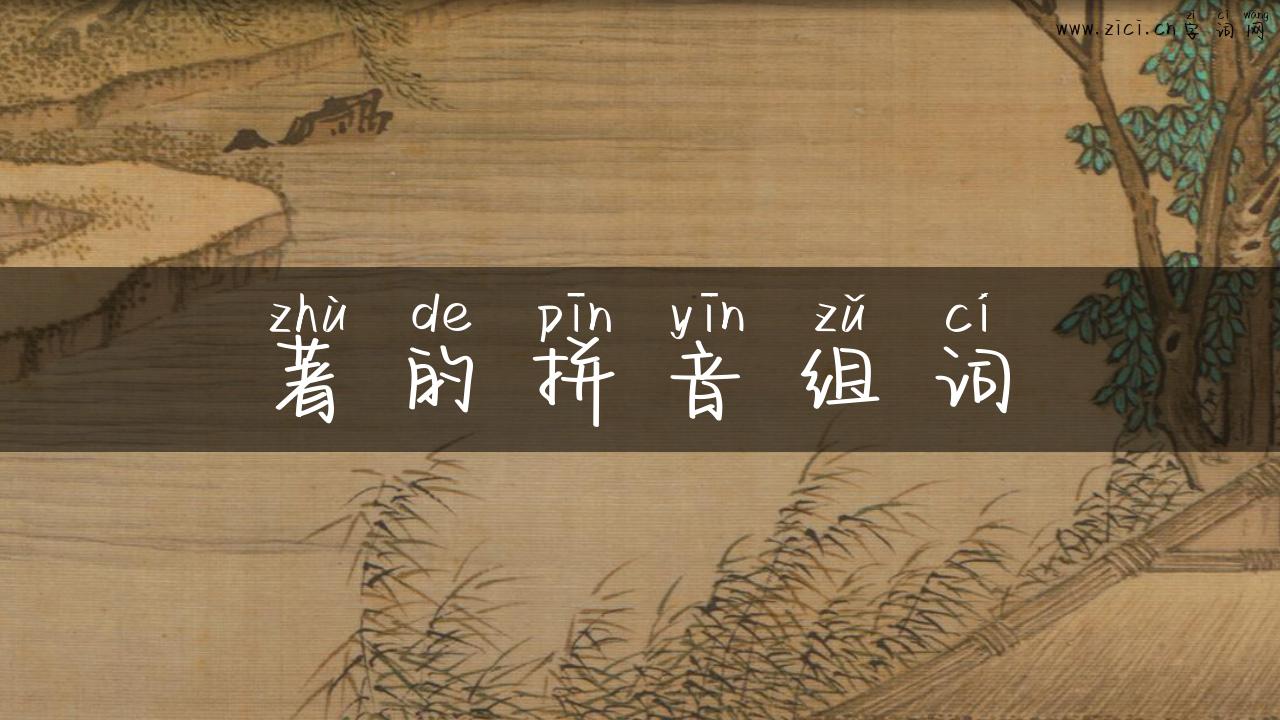 zì cí wǎng
www.zici.cn字词网
zhù de pīn yīn zǔ cí
著的拼音组词